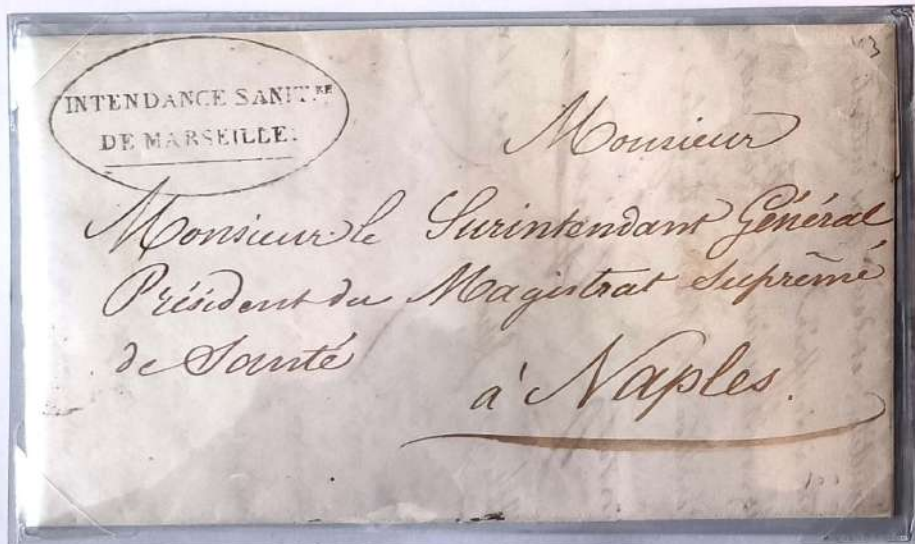 INTENDANCE SANIT.RE
DE MARSEILLE.
Monsieur
Monsieur le Surintendant Général
Président du Magistrat Suprêmé
de Santé
à Naples.